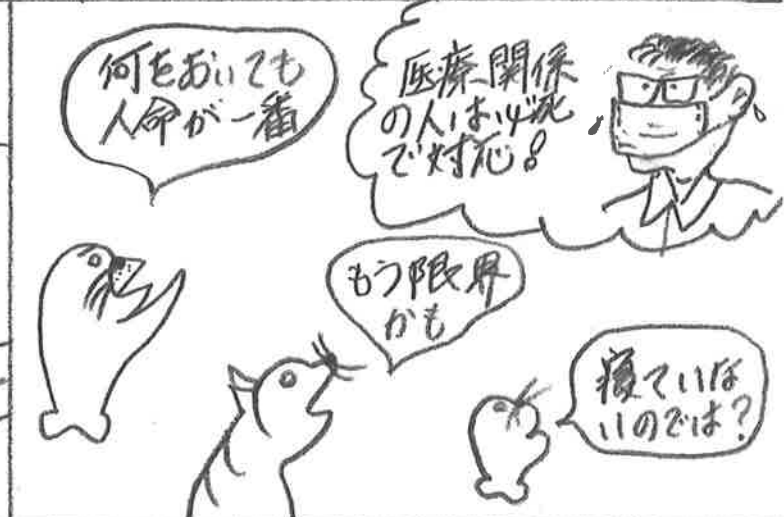 何をおいても
人命が一番
医療関係
の人は必死
で対応。
もう限界
かも
寝ていな
いのでは?